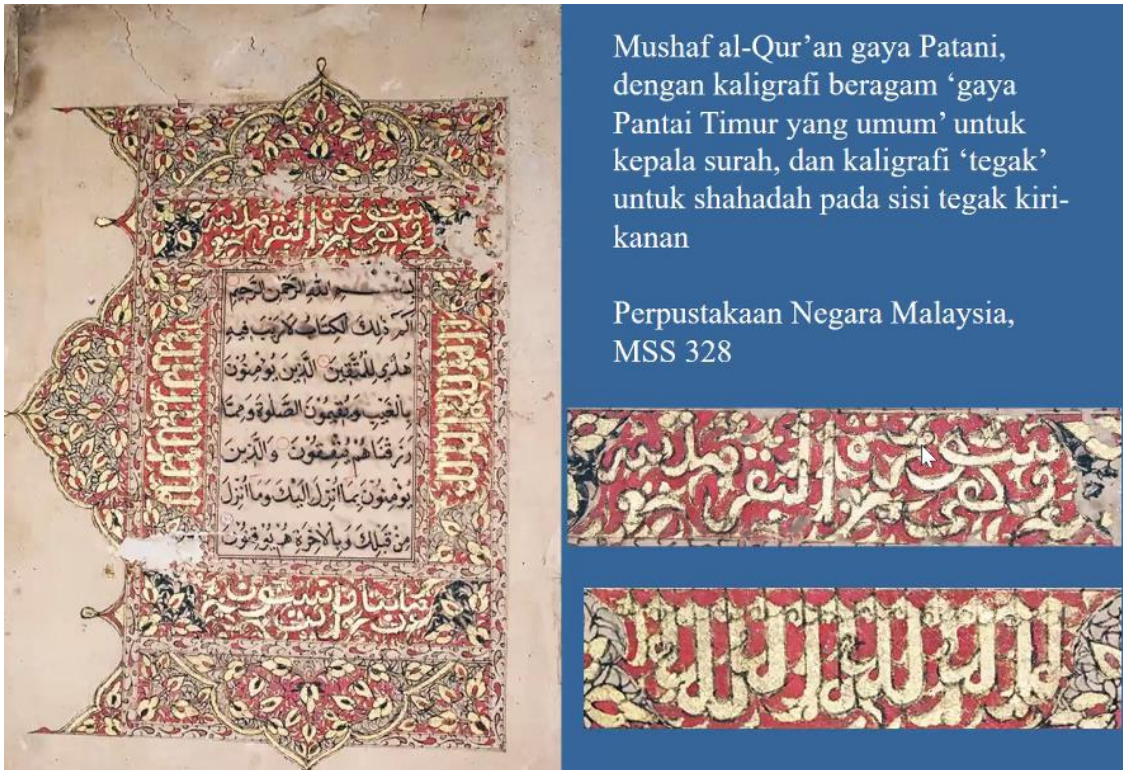 Mushaf al-Qur’an gaya Patani,
dengan kaligrafi beragam ‘gaya
Pantai Timur yang umum’ untuk
kepala surah, dan kaligrafi ‘tegak’
untuk shahadah pada sisi tegak kiri-
kanan
Perpustakaan Negara Malaysia,
MSS 328
بسم الله الرحمن الرحيم
الم ذلك الكتاب لا ريب فيه
هدى للمتقين الذين يؤمنون
بالغيب ويقيمون الصلوة ومما
رزقناهم ينفقون والذين
يؤمنون بما انزل اليك وما انزل
من قبلك وبالاخرة هم يوقنون